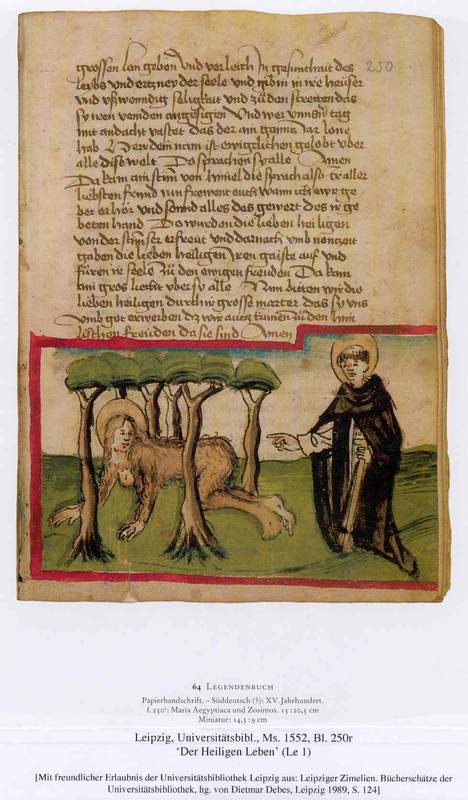 250
grossen lon geben Vnd verleich In gesunthait des
leybs vnd ertzney der sele vnd in in ire heüser
vnd vßwendig seligkait vnd zü den
sy wen Vnd wer tag
mit andacht vastet das der ain gantz Jar lone
hab ist ewigclichen gelobt vber
alle dise welt Do sprachen sy alle Amen
Da kam ain stim von himel die sprach also ir aller
liebsten frewnt euch wann ich ewr ge
bet erhör vnd alles das gewert des ir ge
beten hand Do wurden die lieben heiligen
von der stim ser erfreüt vnd darnach vmb nonzeit
gaben die lieben heiligen Iren gaiste auf vnd
füren ir sele zü den ewigen freüden Da kam
ain gros liecht vber sy alle Nun bitten wir die
lieben heiligen durch ir grosse marter das sy vns
vmb got erwerben dz wir auch kumen zü den him
lischen freüden da sie sind Amen
64 LEGENDENBUCH
Papierhandschrift. – Süddeutsch (?): XV. Jahrhundert.
f. 250r: Maria Aegyptiaca und Zosimos. 15 : 20,5 cm
Miniatur: 14,5 : 9 cm
Leipzig, Universitätsbibl., Ms. 1552, Bl. 250r
‘Der Heiligen Leben’ (Le 1)
[Mit freundlicher Erlaubnis der Universitätsbibliothek Leipzig aus: Leipziger Zimelien. Bücherschätze der
Universitätsbibliothek, hg. von Dietmar Debes, Leipzig 1989, S. 124]